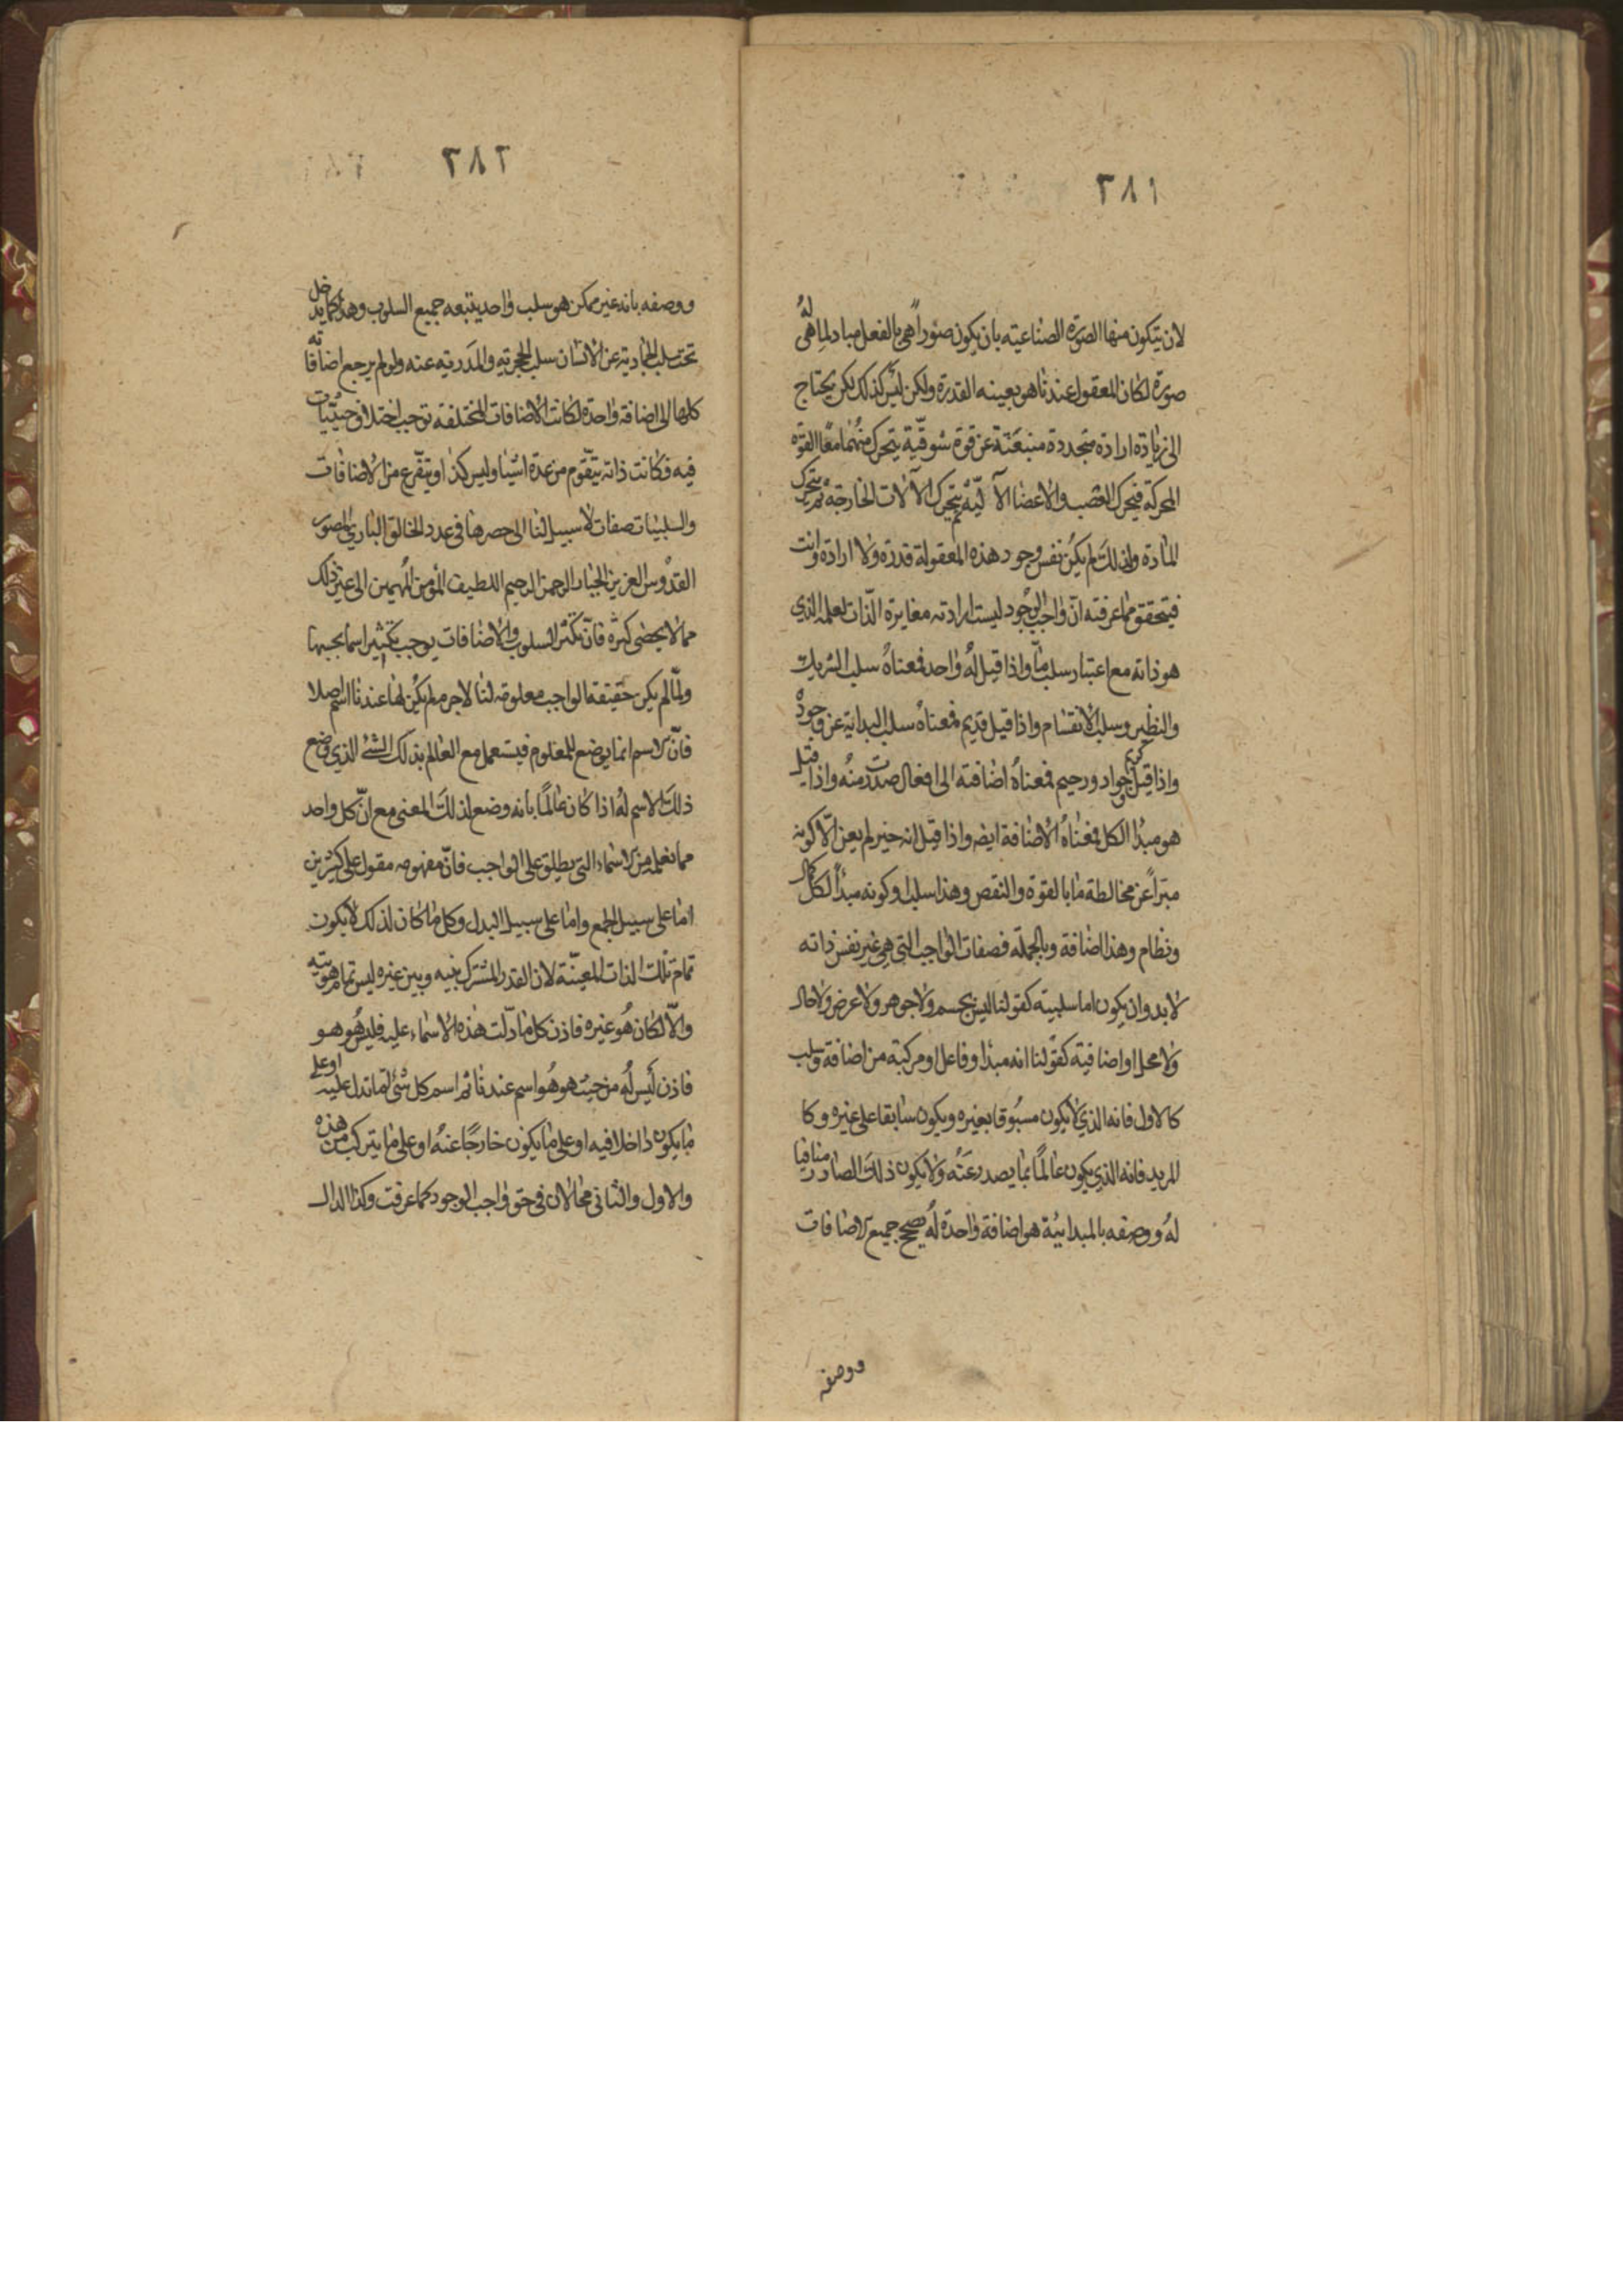 ٣٨١
لان يتكون منها الصورة الصناعيته بان يكون صوراً هي بالفعل مباد لما هي له
صورة لكان المعقول عندنا هو بعينه القدرة ولكن ليس كذلك لكن يحتاج
الى زيادة ارادة متجددة منبعثة عن قوة شوقيّة يتحرك منهما معًا القوة
المحركة فيحرك العصب والاعضا الآ ليّة ثم يتحرك الآلات الخارجة ثم يتحرك
المادة ولذلك لم يكن نفس وجود هذه المعقولة قدرة ولا ارادة وانت
فيتحقق مما عرفته انّ واجب الوجود ليست ارادته مغايرة الذات لعلمه الذي
هو ذاته مع اعتبار سلب مّا واذا قيل لهُ واحد فمعناهُ سلب الشريك
والنظير وسلب الانقسام واذا قيل قديم فمعناهُ سلب البداية عن وجودهُ
واذا قيل كريم وجواد ورحيم فمعناهُ اضافته الى افعال صدرت منهُ واذا قيل
هو مبدا الكل فمعناهُ الاضافة ايضه واذا قيل انه خير لم يعن الّا كونه
مبراً عن مخالطة ما بالقوة والنقص وهذا سلب او كونه مبدأ لكل كمال
ونظام وهذا اضافة وبالجملة فصفات الواجب التي هي غير نفس ذاته
لابد وان يكون اما سلبيته كقولنا ليس بجسم ولا جوهر ولا عرض ولا حال
ولا محل او اضافيّة كقولنا انه مبدا وفاعل او مركبة من اضافة وسلب
كالاول فانه الذي لا يكون مسبوقا بغيره ويكون سابقا على غيره وكا
المريد فانه الذي يكون عالمًا بما يصدر عنه ولا يكون ذلك الصادر منافيا
لهُ ووصفه بالمبدائية هو اضافة واحدة لهُ يصحح جميع الاضافات
ووصفه
٣٨٢
ووصفه بانه غير ممكن هو سلب واحد يتبعه جميع السلوب وهذا كما يدخل
تحت سلب الجمادية عن الانسان سلب الحجرية والمدرية عنه ولو لم يرجع اضافاته
كلها الى اضافة واحدة لكانت الاضافات المختلفة توجب اختلاف حيثيّات
فيه فكانت ذاته يتقّوم من عدة اشيا وليس كذا ويتفرع من الاضافات
والسلبيات صفات لا سبيل لنا الى حصرها في عدد كالخالق الباري المصور
القدوس العزيز الجبار الرحمن الرحيم اللطيف المؤمن المهيمن الى غير ذلك
مما لا يحصى كثرة فانّ تكثر السلوب والاضافات يوجب تكثير اسما بحسبها
ولمّا لم يكن حقيقة الواجب معلومة لنا لاجرم لم يكن لها عندنا اسم اصلا
فانّ الاسم انما يوضع للمعلوم فيستعمل مع العالم بذلك الشئ الذي وضع
ذلك الاسم لهُ اذا كان عالمًا بانه وضع لذلك المعنى مع انّ كل واحد
مما نعلمه من الاسماء التي يطلق على الواجب فانّ مفهومه مقول على كثيرين
اما على سبيل الجمع واما على سبيل البدل وكل ما كان كذلك لا يكون
تمام تلك الذات المعينّة لان القدر المشترك بينه وبين غيره ليس تمام هويته
والّا لكان هُو غيره فاذن كل ما دلّت هذه الاسماء عليه فليس هُو هو
فاذن ليس لهُ من حيث هو هُو اسم عندنا ثم اسم كل شئ انما تدل عليه او على
ما يكون داخلا فيه او على ما يكون خارجًا عنهُ او على ما يتركب من هذه
والاول والثاني محالان في حق واجب الوجود كما عرفت وكذا الدال